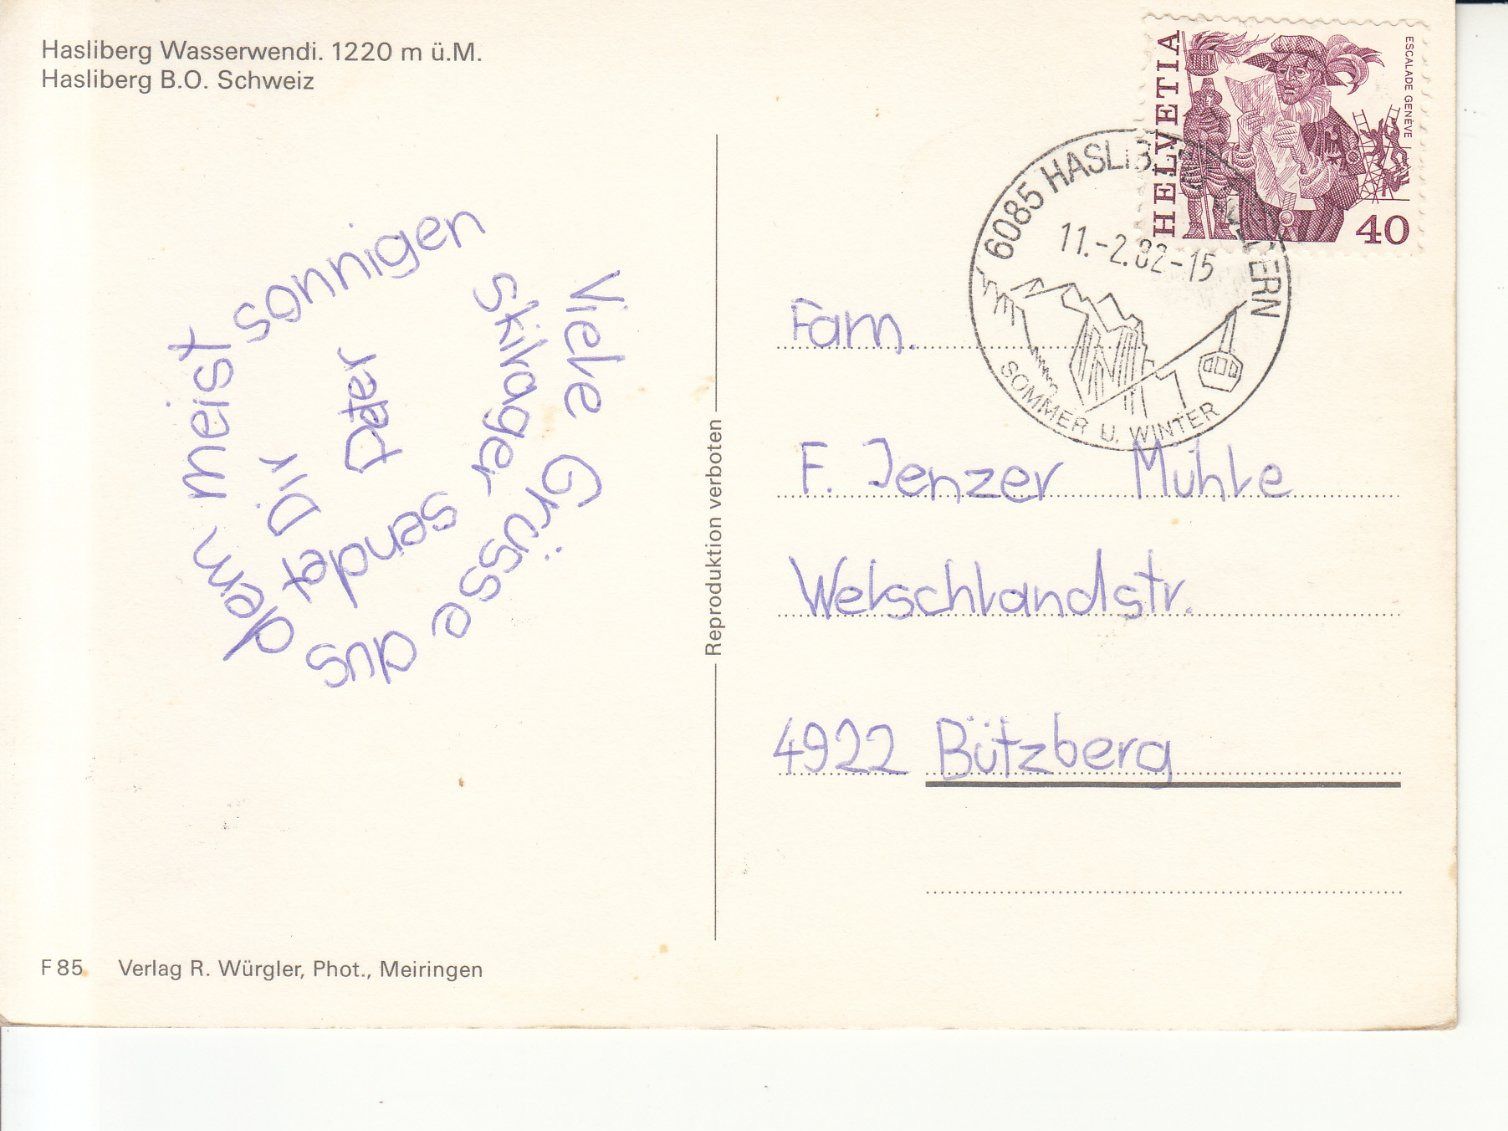 Hasliberg Wasserwendi. 1220 m ü.M.
Hasliberg B.O. Schweiz
Viele Grüsse aus dem meist sonnigen Skilager sendet Dir Peter
F 85 Verlag R. Würgler, Phot., Meiringen
Reproduktion verboten
HELVETIA
ESCALADE GENÈVE
40
6085 HASLIBERG
11.-2.82-15
SOMMER U. WINTER
Fam.
F. Jenzer Mühle
Welschlandstr.
4922 Bützberg